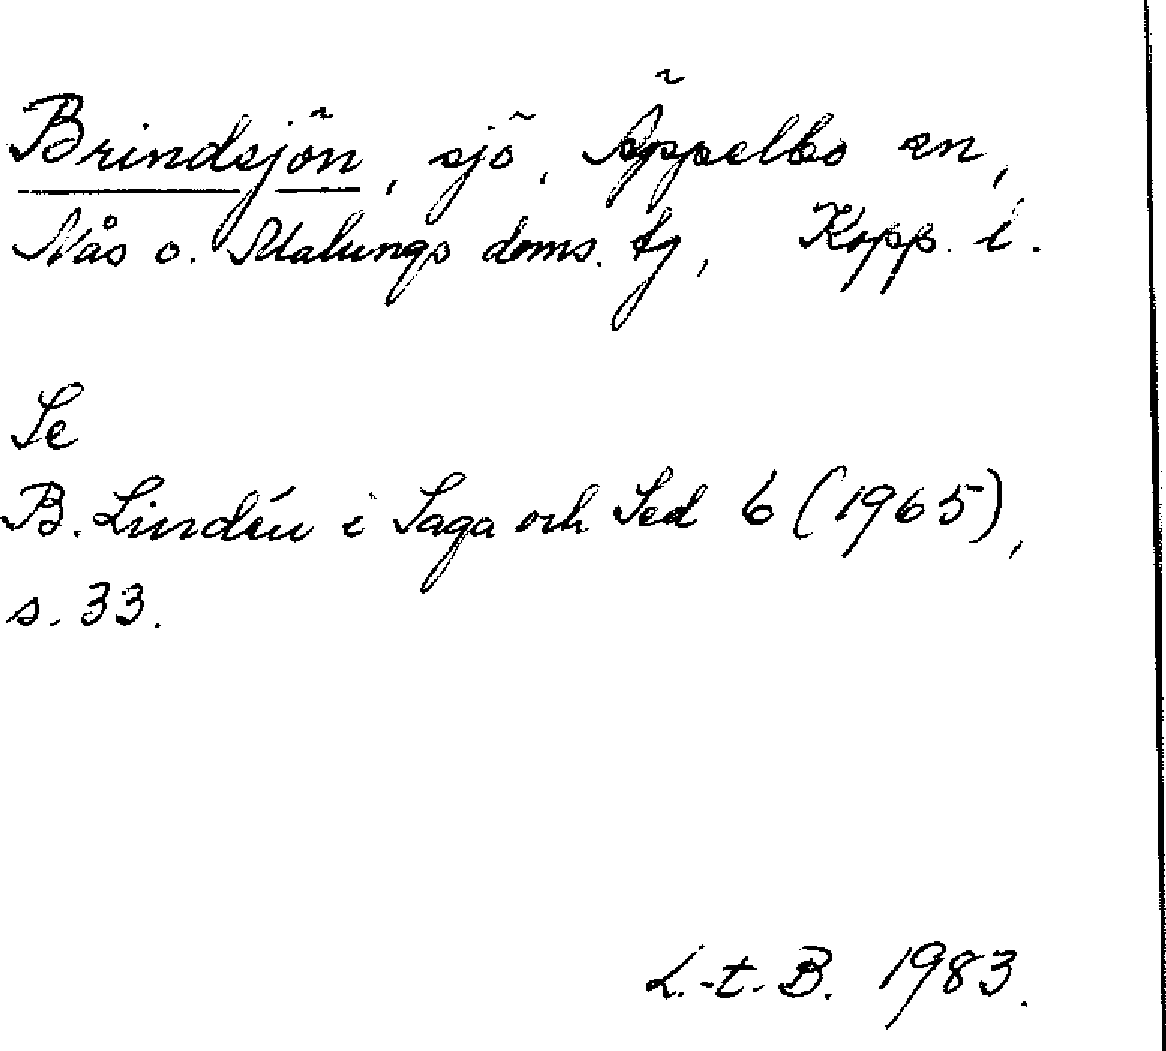 Brindsjön, sjö, Äppelbo sn,
Nås o. Malungs doms. tg, Kopp. l.
Se
B. Lindén i Saga och Sed 6 (1965),
s. 33.
L.-t. B. 1983.